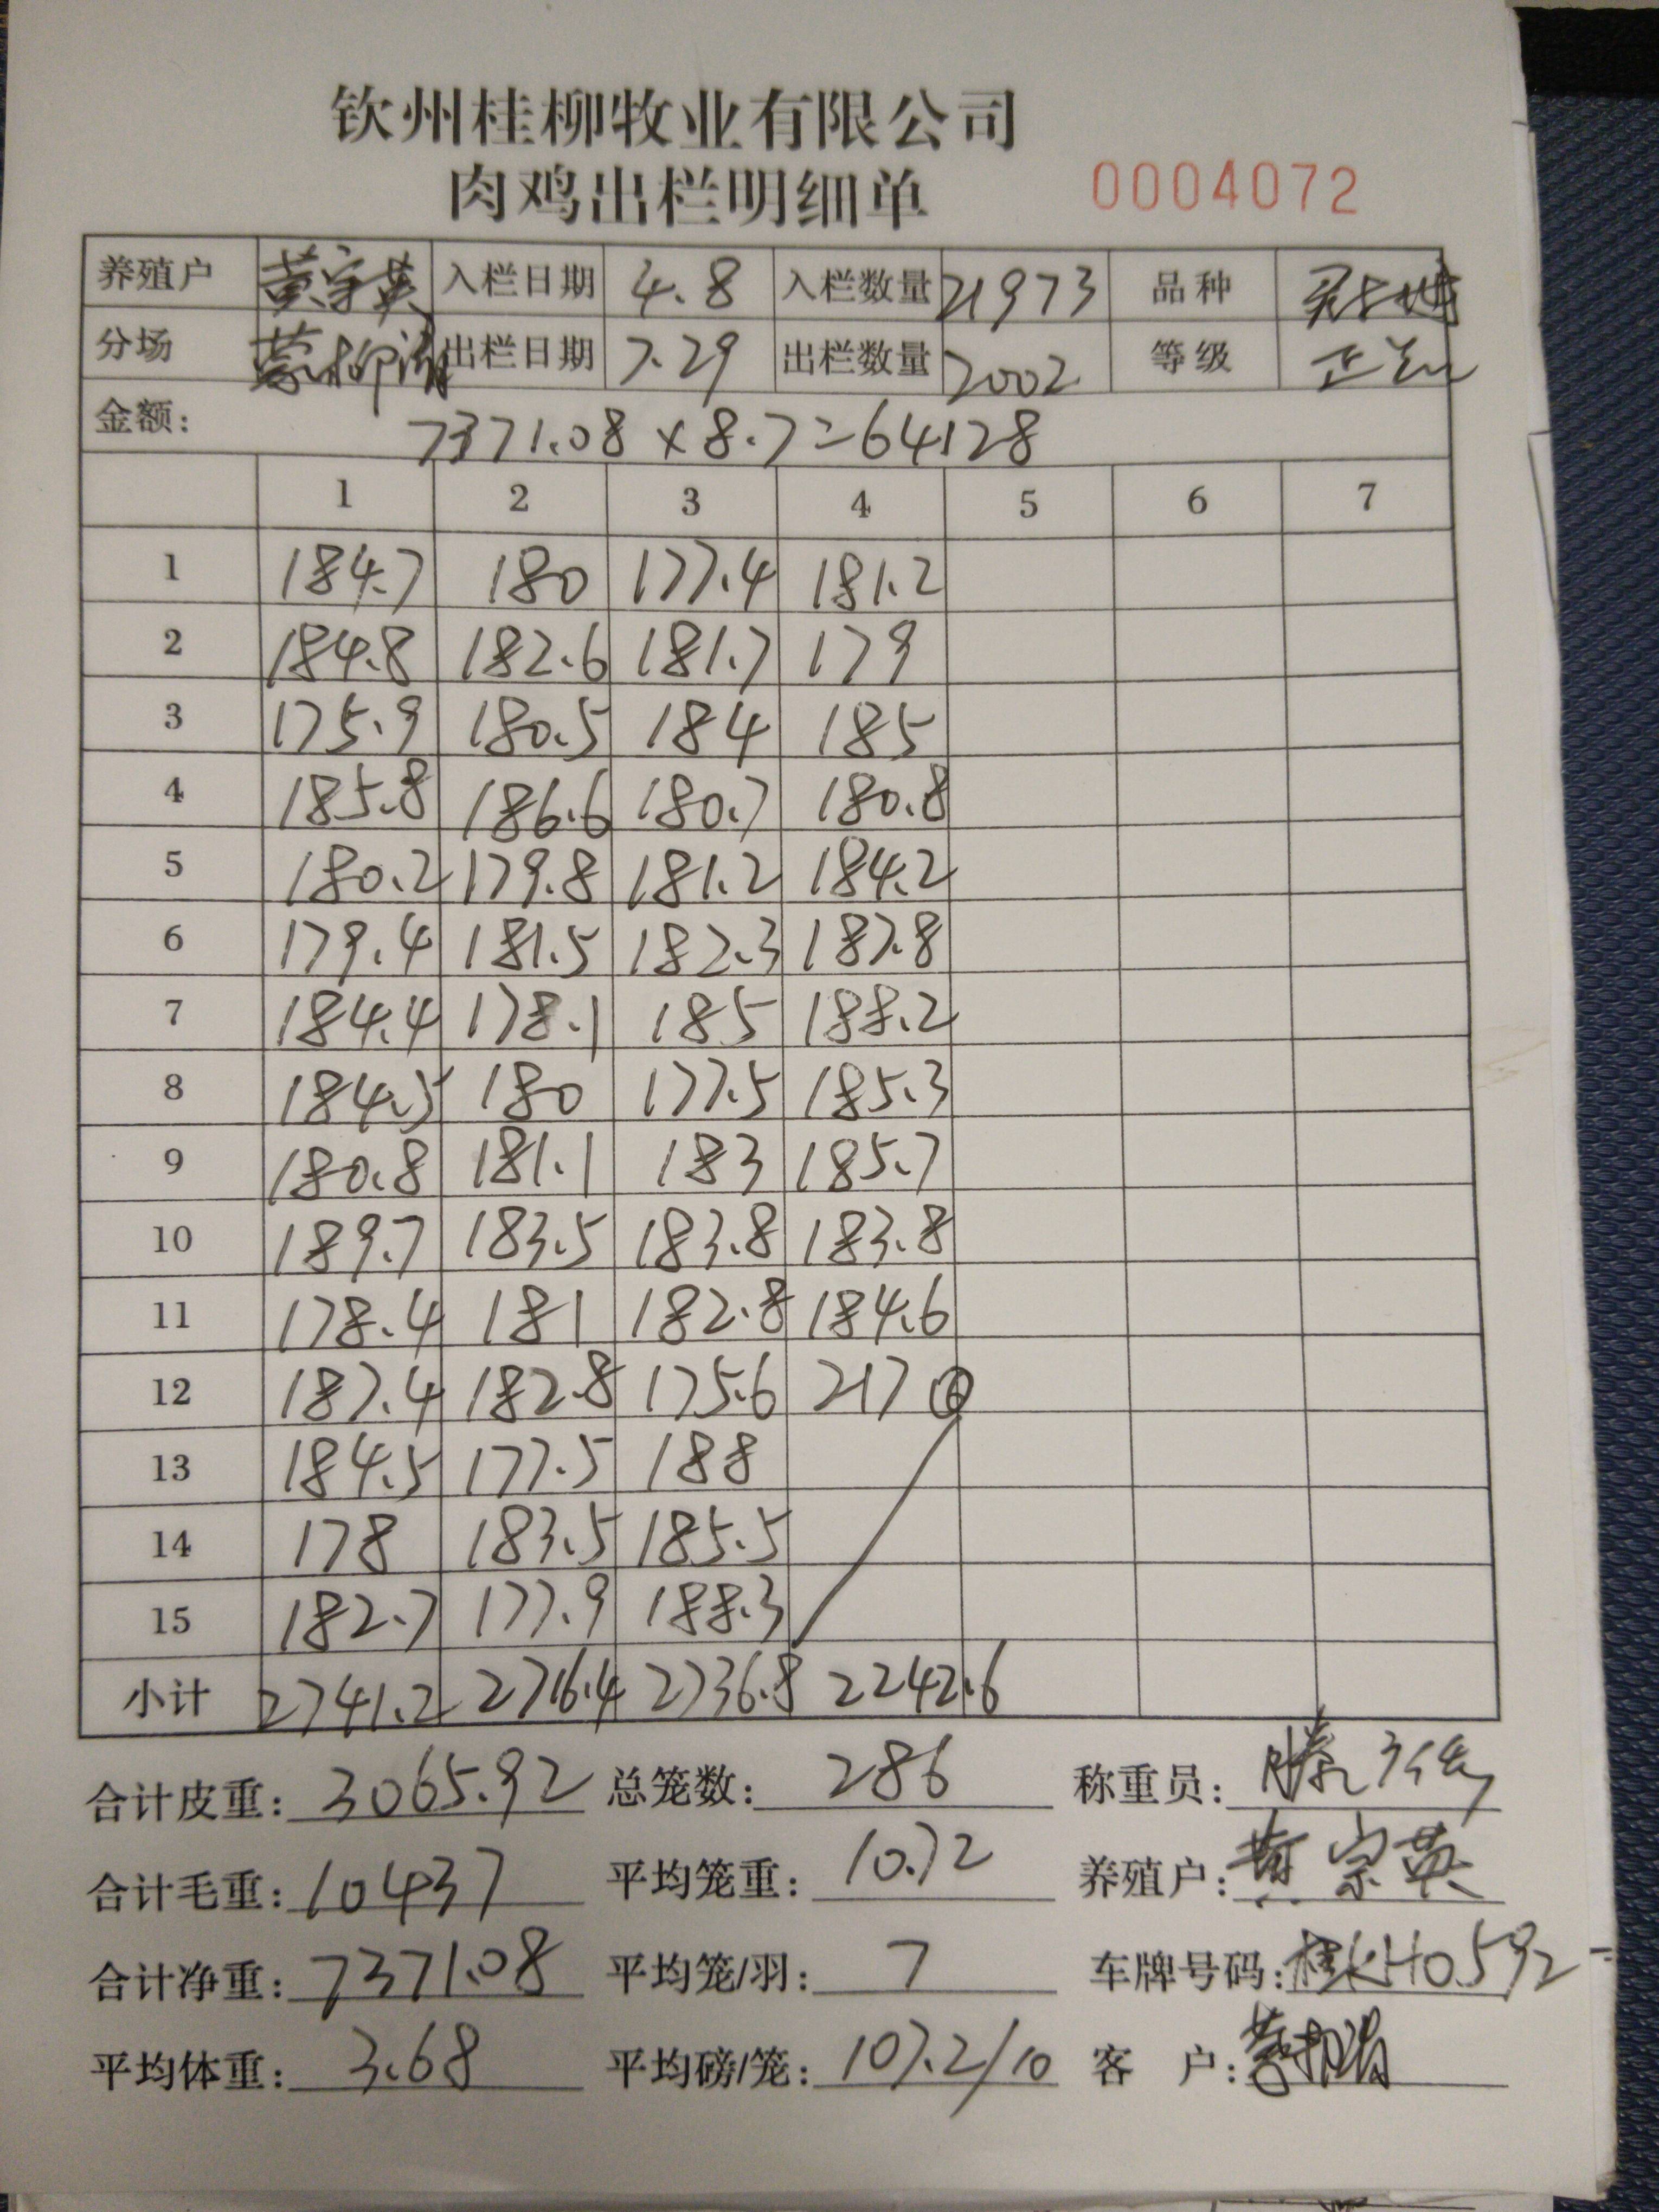 钦州桂柳牧业有限公司
肉鸡出栏明细单 0004072
养殖户 黄宗英 入栏日期 4.8 入栏数量 21973 品种
分场 出栏日期 7.29 出栏数量 2002 等级
金额: 7371.08 × 8.7=64128
1 2 3 4 5 6 7
1 184.7 180 177.4 181.2
2 184.8 182.6 181.7 179
3 175.9 180.5 184 185
4 185.8 186.6 180.7 180.8
5 180.2 179.8 181.2 184.2
6 179.4 181.5 182.3 187.8
7 184.4 178.1 185 188.2
8 184.5 180 177.5 185.3
9 180.8 181.1 183 185.7
10 189.7 183.5 183.8 183.8
11 178.4 181 182.8 184.6
12 187.4 182.8 175.6 217
13 184.5 177.5 188
14 178 183.5 185.5
15 182.7 177.9 188.3
小计 2741.2 2716.4 2736.8 2242.6
合计皮重: 3065.92 总笼数: 286 称重员:
合计毛重: 10437 平均笼重: 10.72 养殖户: 黄宗英
合计净重: 7371.08 平均笼/羽: 7 车牌号码:
平均体重: 3.68 平均磅/笼: 107.2/10 客 户: